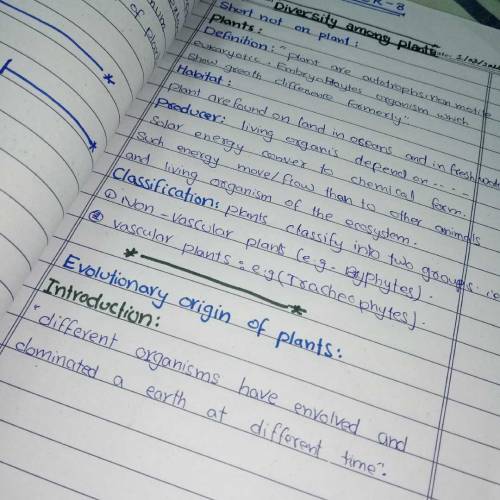 R-8
Diversity among plants
Short not on plant:
Plants:
Definition: "Plant are autotrophs, non motile
eukaryotic, Embryophytes organism which
Show growth difference formerly"
Habitat:
Plant are found on land in oceans and in fresh
Producer: living organis depend on .....
Solar energy convex to chemical form.
Such energy move/flow than to other animals
and living organism of the ecosystem.
Classification: plants classify into two groups:
① Non-vascular plants (e.g. Byphytes).
② vascular plants: e.g (Tracheophytes).
Evolutionary origin of plants:
Introduction:
"different organisms have envolved and
dominated a earth at different time".